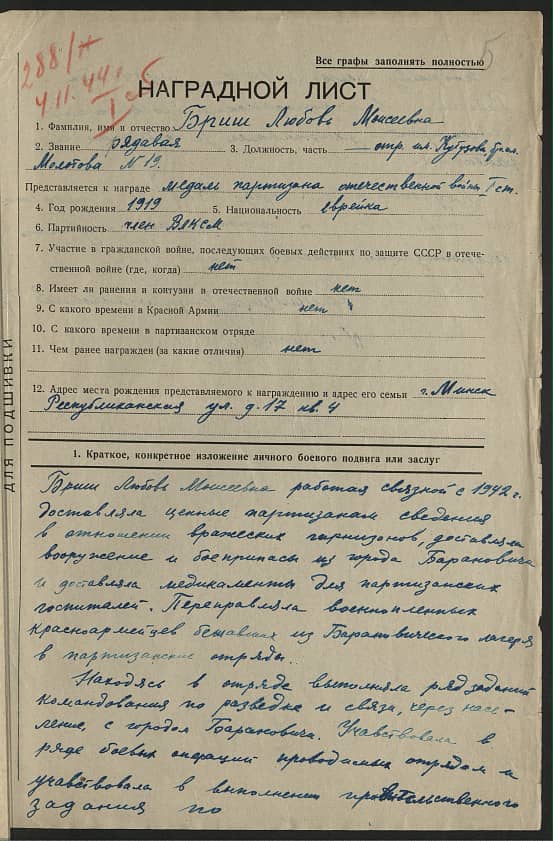 288/н
4.11.44г.
I
5
Все графы заполнять полностью
НАГРАДНОЙ ЛИСТ
1. Фамилия, имя и отчество Бриш Любовь Моисеевна
2. Звание рядавая 3. Должность, часть отр. им. Кутузова бриг.
Молотова N 19.
Представляется к награде медаль партизана отечественной войны I ст.
4. Год рождения 1919 5. Национальность еврейка
6. Партийность член ВЛКСМ
7. Участие в гражданской войне, последующих боевых действиях по защите СССР в отече-
ственной войне (где, когда) нет
8. Имеет ли ранения и контузии в отечественной войне нет
9. С какого времени в Красной Армии нет
10. С какого времени в партизанском отряде
11. Чем ранее награжден (за какие отличия) нет
12. Адрес места рождения представляемого к награждению и адрес его семьи г. Минск
Республиканская ул. д. 17 кв. 4
ДЛЯ ПОДШИВКИ
1. Краткое, конкретное изложение личного боевого подвига или заслуг
Бриш Любовь Моисеевна работая связной с 1942 г.
доставляла ценные партизанам сведения
в отношении вражеских гарнизонов, доставляла
вооружение и боеприпасы из города Барановича
и доставляла медикаменты для партизанских
госпиталей. Переправляла военнопленных
красноармейцев бежавших из Барановического лагеря
в партизанские отряды.
Находясь в отряде выполняла ряд заданий
командования по разведке и связи, через насе-
ление, с городом Барановичи. Учавствовала в
ряде боевых операций проводимых отрядом и
учавствовала в выполнении правительственного
задания по